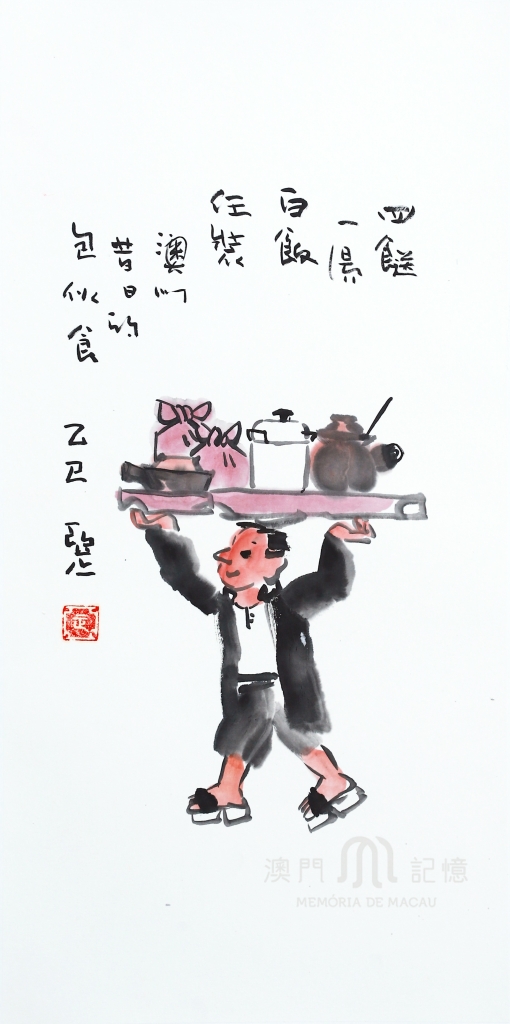 四餸
一湯
白飯
任裝
澳門
昔日的
包伙食
乙巳
澳門記憶
MEMÓRIA DE MACAU